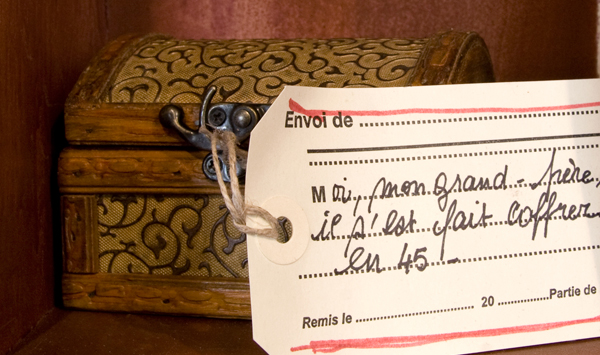 Envoi de
Moi, mon grand-père,
il s'est fait coffrer
en 45 -
Remis le 20 Partie de